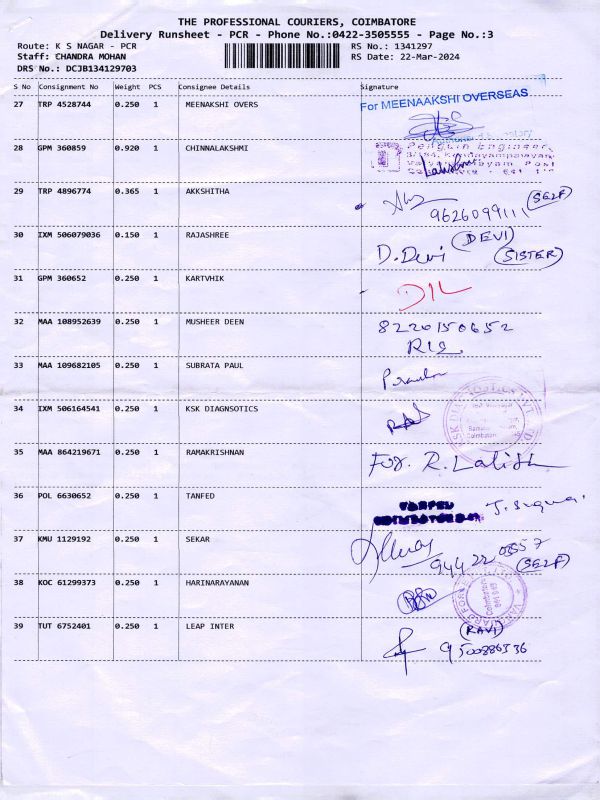 THE PROFESSIONAL COURIERS, COIMBATORE
Delivery Runsheet - PCR - Phone No.:0422-3505555 - Page No.:3
Route: K S NAGAR - PCR RS No.: 1341297
Staff: CHANDRA MOHAN RS Date: 22-Mar-2024
DRS No.: DCJB134129703
S No Consignment No Weight PCS Consignee Details Signature
27 TRP 4528744 0.250 1 MEENAKSHI OVERS For MEENAAKSHI OVERSEAS
28 GPM 360859 0.920 1 CHINNALAKSHMI Penguin Engineer,
Lakshmi
29 TRP 4896774 0.365 1 AKKSHITHA (SELF)
9626099111
30 IXM 506079036 0.150 1 RAJASHREE D.Devi (DEVI)
(SISTER)
31 GPM 360652 0.250 1 KARTVHIK DIL
32 MAA 108952639 0.250 1 MUSHEER DEEN 8220150652
33 MAA 109682105 0.250 1 SUBRATA PAUL
34 IXM 506164541 0.250 1 KSK DIAGNSOTICS
35 MAA 864219671 0.250 1 RAMAKRISHNAN For. R. Lalith
36 POL 6630652 0.250 1 TANFED TANFED
37 KMU 1129192 0.250 1 SEKAR
(SELF)
38 KOC 61299373 0.250 1 HARINARAYANAN
39 TUT 6752401 0.250 1 LEAP INTER (RAVI)
9500886336